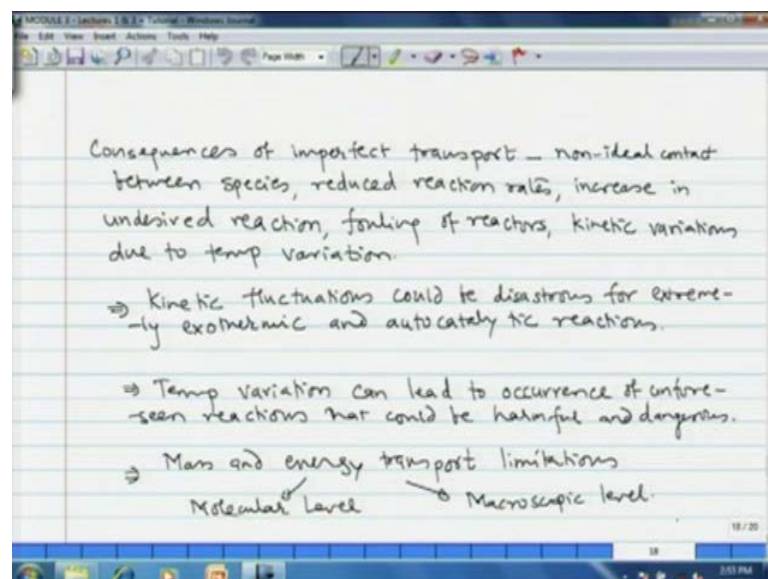 MODULE 3 - Lectures 1 & 2 + Tutorial - Windows Journal
File Edit View Insert Actions Tools Help
Page Width
Consequences of imperfect transport – non-ideal contact
between species, reduced reaction rates, increase in
undesired reaction, fouling of reactors, kinetic variations
due to temp variation.
⇒ Kinetic fluctuations could be disastrous for extreme-
-ly exothermic and autocatalytic reactions.
⇒ Temp variation can lead to occurrence of unfore-
-seen reactions that could be harmful and dangerous.
⇒ Mass and energy transport limitations
Molecular Level Macroscopic level.
18 / 20
18
2:53 PM